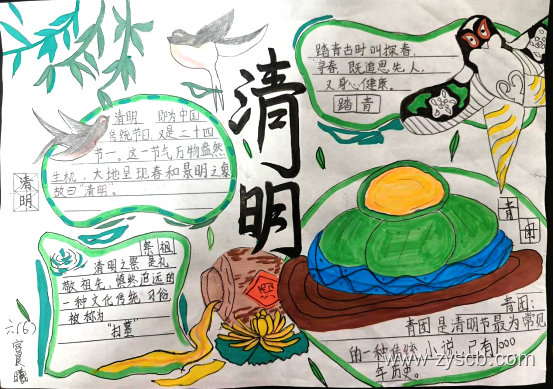 清明
清明，即为中国
传统节日，又是二十四
节一。这一节气万物盎然
生机，大地呈现春和景明之象
故曰"清明。
清
明
踏青古时叫探春、
寻春，既追思先人，
又身心健康。
踏青
祭祖
清明之祭是礼
敬祖先，慎终追远的
一种文化传统，习俗
被称为
"扫墓"
青
团
青团：
青团是清明节最为常见
的一种传统小说，已有1000
年历史。
六(6)
曦
www.zyscb.com